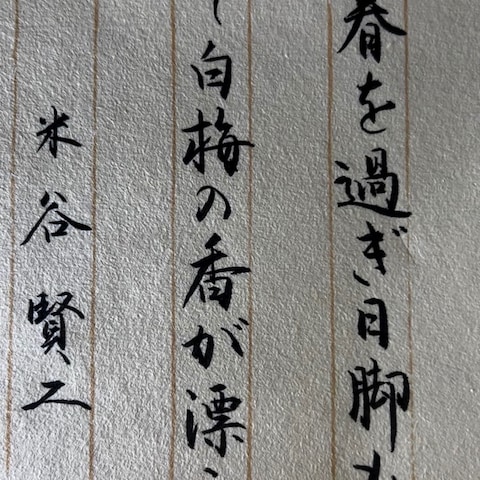 春を過ぎ日脚も
白梅の香が漂
米谷賢二